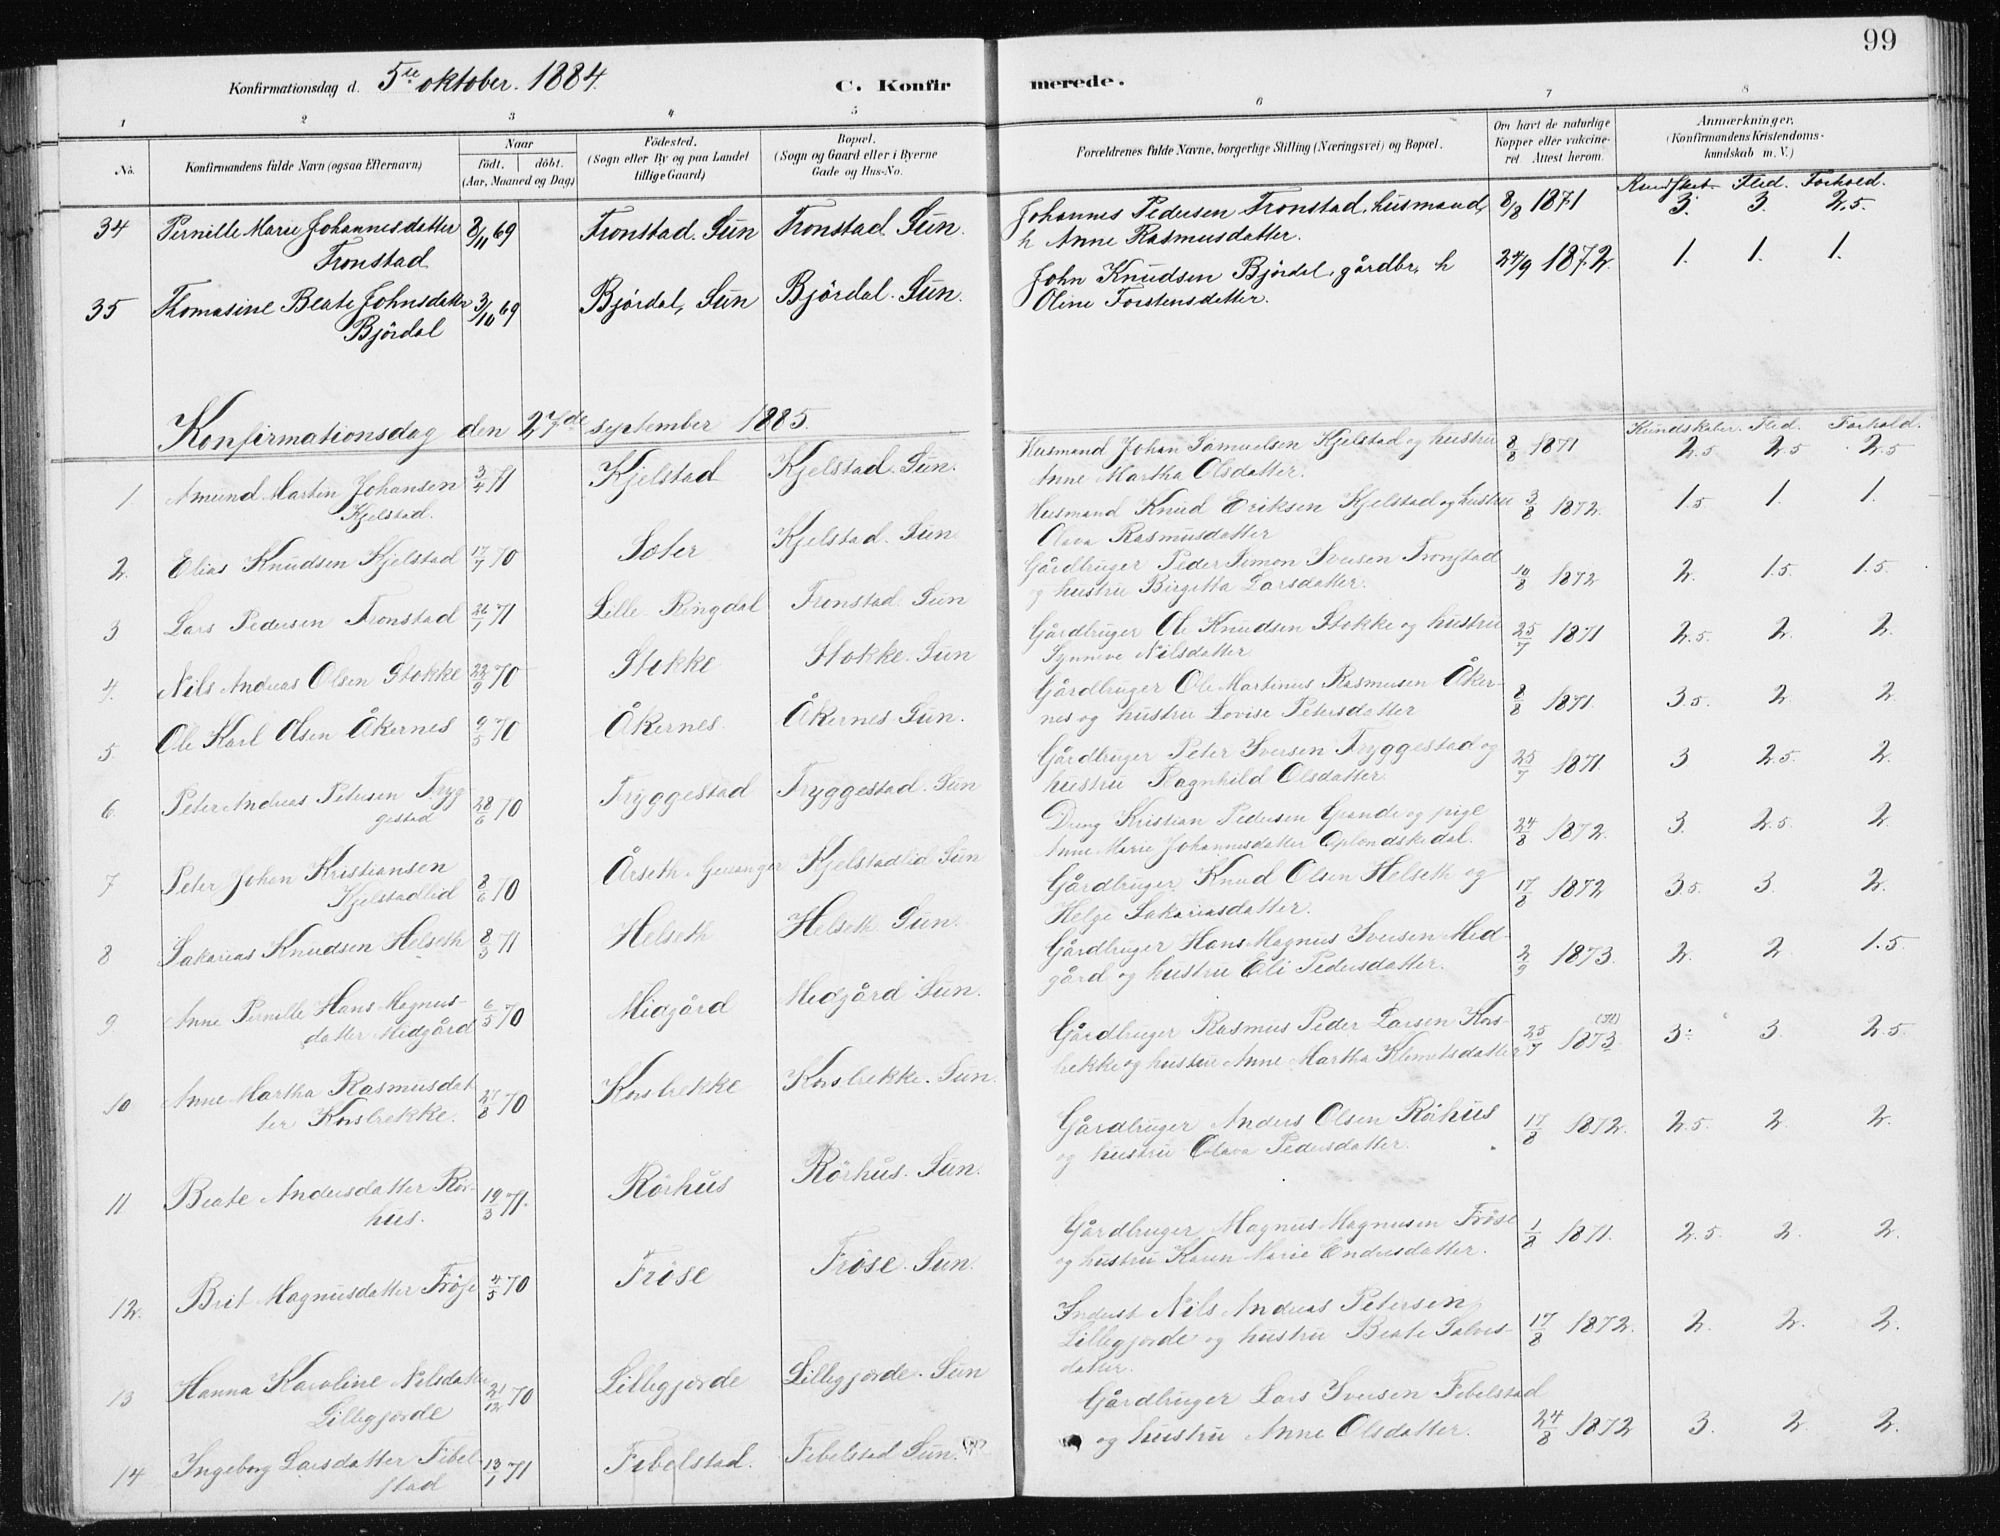 99
Konfirmationsdag d. 5te oktober. 1884.
C. Konfirmerede.
1 2 3 4 5 6 7 8
No. Konfirmandens fulde Navn (ogsaa Efternavn) Naar født. døbt. (Aar, Maaned og Dag) Fødested. (Sogn eller By og paa Landet tillige Gaard) Bopæl. (Sogn og Gaard eller i Byerne Gade og Hus-No. Forældrenes fulde Navne, borgerlige Stilling (Næringsvei) og Bopæl. Om havt de naturlige Kopper eller vakcineret. Attest herom. Anmærkninger. (Konfirmandens Kristendomskundskab m. V.)
Kundskab. Flid. Forhold.
34 Pernille Marie Johannesdatter Tronstad 8/11 69 Tronstad. Sun Tronstad. Sun. Johannes Pedersen Tronstad, husmand, h Anne Rasmusdatter. 8/8 1871 3. 3. 2,5.
35 Thomasine Beate Johnsdatter Bjørdal 3/10 69 Bjørdal, Sun Bjørdal. Sun. John Knudsen Bjørdal, gårdbr, h Oline Torstensdatter. 24/9 1872. 1. 1. 1.
Konfirmationsdag den 27de september 1885.
Kundskaber. Flid. Forhold.
1 Amund Martin Johansen Kjelstad. 3/4 71 Kjelstad Kjelstad. Sun. Husmand Johan Samuelsen Kjelstad og hustru Anne Martha Olsdatter. 8/8 1871 2.5 2.5 2.5
2. Elias Knudsen Kjelstad 17/7 70 Sæter Kjelstad. Sun. Husmand Knud Eriksen Kjelstad og hustru Olava Rasmusdatter 3/8 1872. 1.5 1. 1.
3 Lars Pedersen Tronstad 26/1 71 Lille-Ringdal Tronstad. Sun Gårdbruger Peder Simon Iversen Tronstad og hustru Birgitta Larsdatter. 10/8 1872 2. 1.5. 1.5.
4. Nils Andreas Olsen Stokke 22/9 70 Stokke Stokke. Sun Gårdbruger Ole Knudsen Stokke og hustru Synneve Nilsdatter. 25/7 1871 2.5. 2. 2.
5. Ole Karl Olsen Åkernes 9/5 70 Åkernes. Åkernes. Sun. Gårdbruger Ole Martinus Rasmusen Åkernes og hustru Lovise Petersdatter 8/8 1871. 3.5. 2 2.
6. Peter Andreas Petersen Tryggestad 28/6 70 Tryggestad Tryggestad. Sun Gårdbruger Peter Iversen Tryggestad og hustru Ragnhild Olsdatter. 25/7 1871. 3 2.5. 2.
7 Peter Johan Kristiansen Kjelstadlid 8/6 70 Årseth. Geiranger Kjelstadlid Sun Dreng Kristian Pedersen Grande og pige Anne Marie Johannesdatter Oplendskedal. 24/8 1872. 3. 2.5. 2.
8 Sakarias Knudsen Helseth 8/3 71 Helseth Helseth. Sun. Gårdbruger Knud Olsen Helseth og Helge Sakariasdatter. 17/8 1872 3.5. 3. 2.
9. Anne Pernille Hans Magnusdatter Midgård 6/5 70 Midgård Midgård Sun. Gårdbruger Hans Magnus Iversen Midgård og hustru Eli Pedersdatter. 2/9 1873. 2. 2. 1.5.
10 Anne Martha Rasmusdatter Korsbrekke. 27/8 70 Korsbrekke Korsbrekke. Sun. Gårdbruger Rasmus Peder Larsen Korsbrekke og hustru Anne Martha Klemetsdatter 25/7 1873 3. 3. 2.5.
11 Beate Andersdatter Rørhus. 19/3 71. Rørhus Rørhus. Sun. Gårdbruger Anders Olsen Rørhus og hustru Olava Pedersdatter. 17/8 1872. 2.5. 2. 2.
12. Brit Magnusdatter Frøse 4/5 70 Frøse Frøse. Sun. Gårdbruger Magnus Magnusen Frøse og hustru Karen Marie Endresdatter. 1/8 1871. 2.5. 2. 2.
13 Hanna Karoline Nilsdatter Lillegjorde 21/12 70 Lillegjorde Lillegjorde. Sun Inderst Nils Andreas Petersen Lillegjorde og hustru Beate Salvesdatter. 17/8 1872. 2. 2. 2.
14 Ingeborg Larsdatter Fibelstad 13/1 71 Fibelstad. Fibelstad Sun. Gårdbruger Lars Iversen Fibelstad og hustru Anne Olsdatter. 24/8 1872 3. 2. 2.